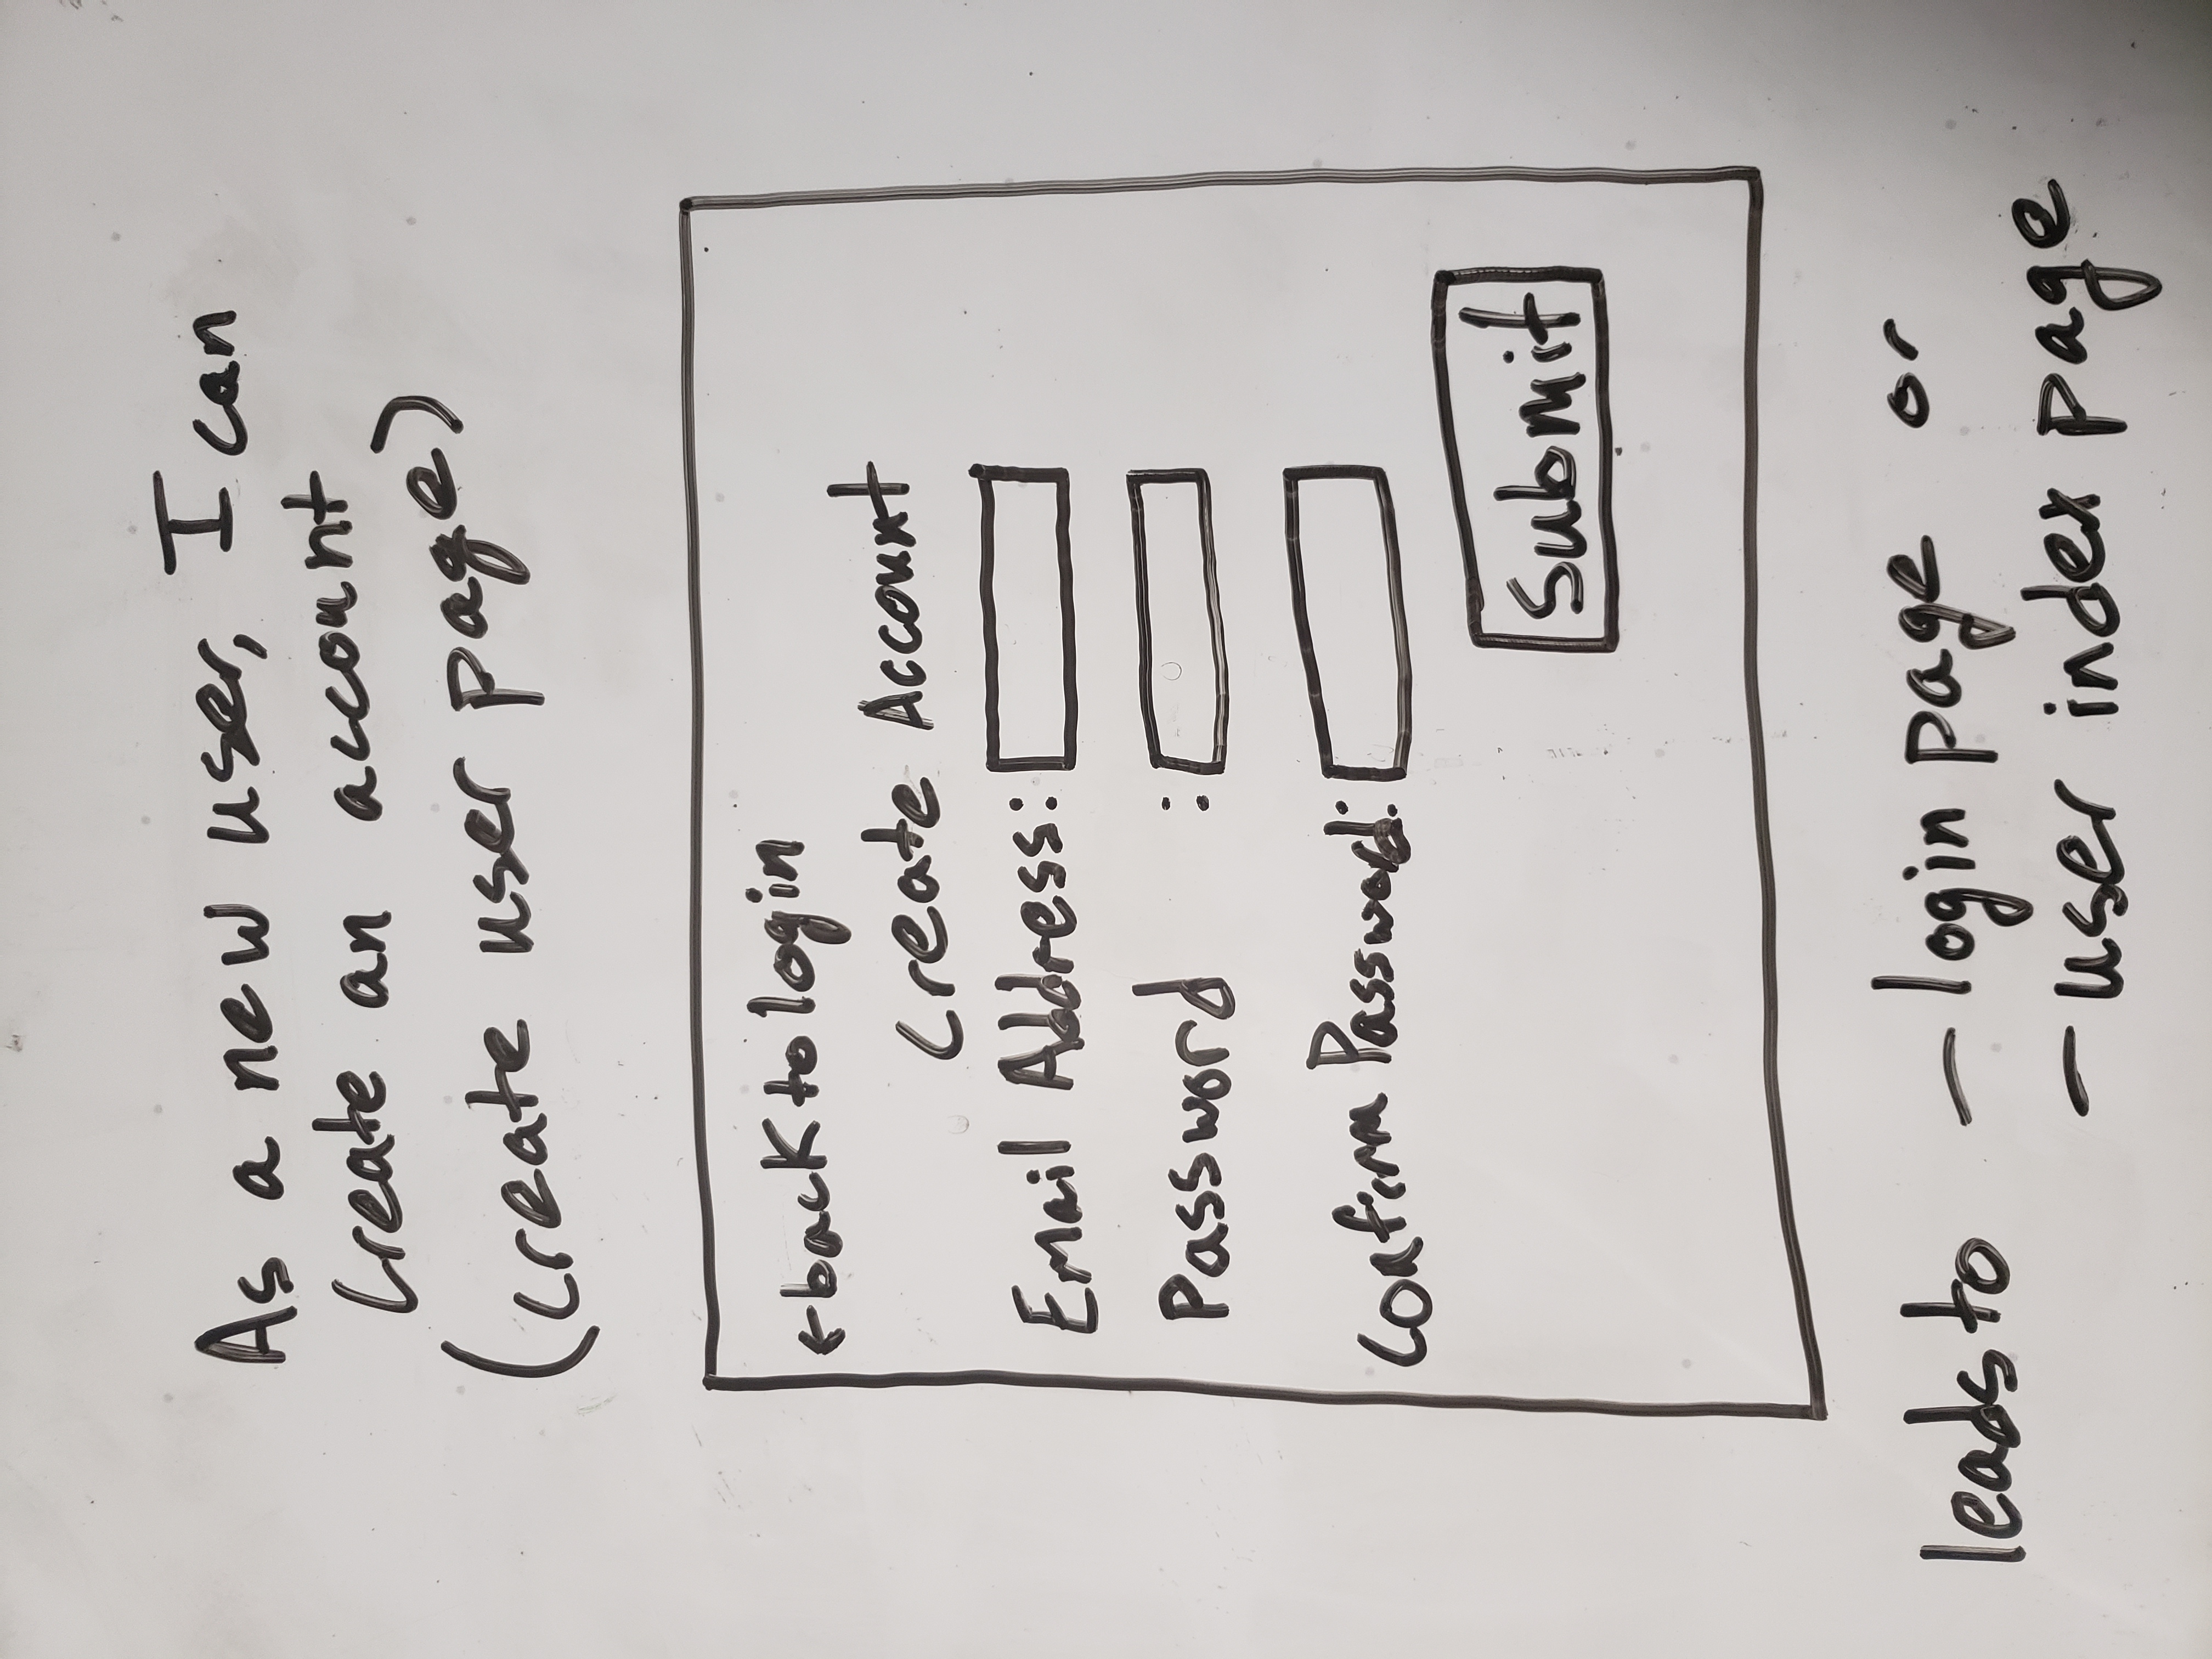 As a new user, I can
create an account
(create user page)
←back to login
Create Account
Email Address:
Password :
Confirm Password:
Submit
leads to - login page or
- user index page